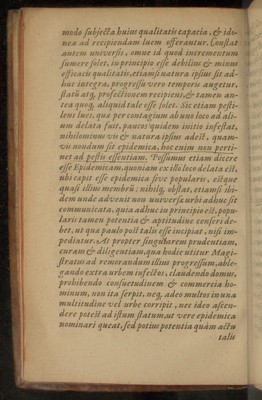 modo subjecta huius qualitatis capacia, & ido-
nea ad recipiendam luem offerantur. Constat
autem universis, omne id quod incrementum
sumere solet, in principio esse debilius & minus
efficacis qualitatis, etiamsi natura ipsius sit ad-
huc integra, progressu vero temporis augetur,
statũ atq, profectionem recipiens, & tamen an-
tea quoq, aliquid tale esse solet. Sic etiam pesti-
lens lues, qua per contagium ab uno loco ad ali-
um delata fuit, paucos quidem initio infestat,
nihilominus vis & natura ipsius adest, quam-
vis nondum sit epidemica, hoc enim non perti-
net ad pestis essentiam. Possumus etiam dicere
esse Epidemicam, quoniam ex illo loco delata est,
ubi cæpit esse epidemica sive popularis, estque
quasi illius membrũ; nihilq, obstat, etiamsi ibi-
dem unde advenit non universæ urbi adhuc sit
communicata, quia adhuc in principio est, popu-
laris tamen potentia & aptitudine censeri de-
bet, ut qua paulo post talis esse incipiat, nisi im-
pediatur. At propter singularem prudentiam,
curam & diligentiam, qua hodie utitur Magi-
stratus ad remorandum illius progressum, able-
gando extra urbem infectos, claudendo domus,
prohibendo consuetudinem & commercia ho-
minum, non ita serpit, neq, adeo multos in una
multitudine vel urbe corripit, nec ideo ascen-
dere potest ad istum statum, ut vere epidemica
nominari queat, sed potius potentia quàm actu
talis